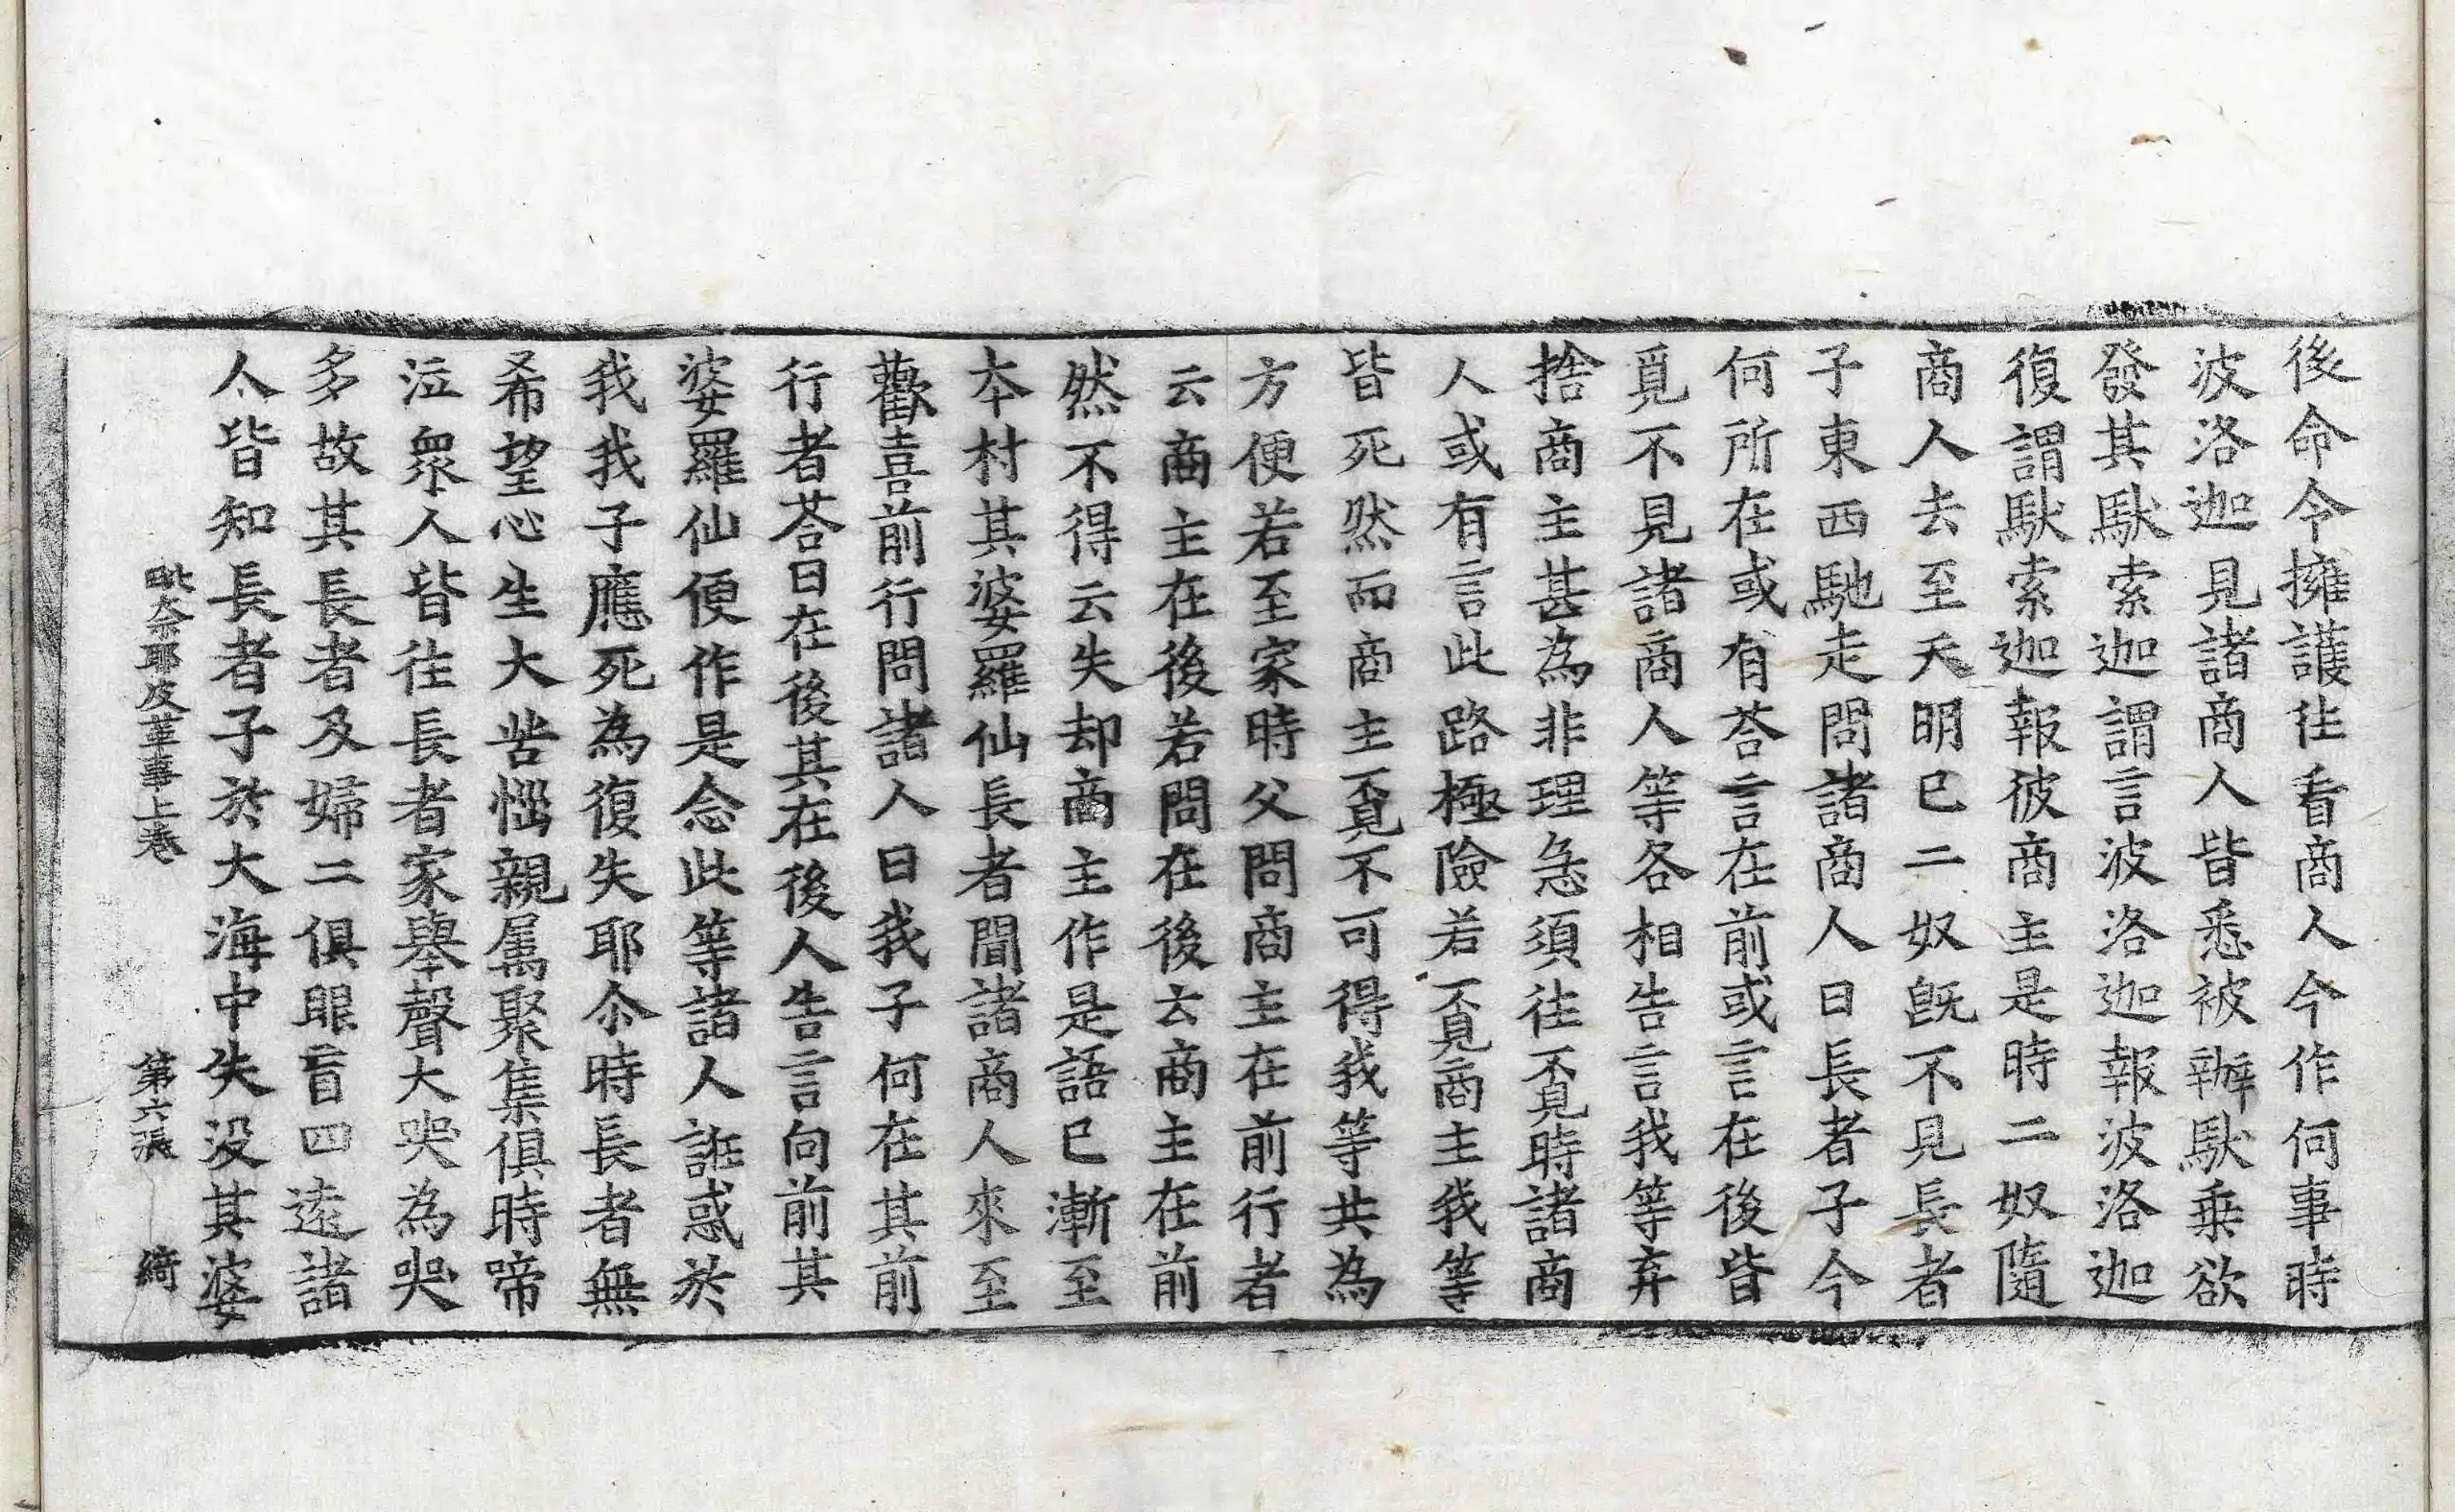 後命令擁護往看商人今作何事時
波洛迦見諸商人皆悉被辦馱乗欲
發其馱索迦謂言波洛迦報波洛迦
復謂馱索迦報彼商主是時二奴隨
商人去至天明已二奴旣不見長者
子東西馳走問諸商人曰長者子今
何所在或有荅言在前或言在後皆
覓不見諸商人等各相告言我等弃
捨商主甚為非理急須往覔時諸商
人或有言此路極險若覔商主我等
皆死然而商主覔不可得我等共為
方便若至家時父問商主在前行者
云商主在後若問在後云商主在前
然不得云失却商主作是語已漸至
本村其婆羅仙長者聞諸商人來至
歡喜前行問諸人曰我子何在其前
行者荅曰在後其在後人告言向前其
婆羅仙便作是念此等諸人誑惑於
我我子應死為復失耶尒時長者無
希望心生大苦惱親属聚集俱時啼
泣衆人皆往長者家舉聲大哭為哭
多故其長者及婦二俱眼盲四遠諸
人皆知長者子於大海中失没其婆
毗奈耶皮革事上卷 第六張 綺